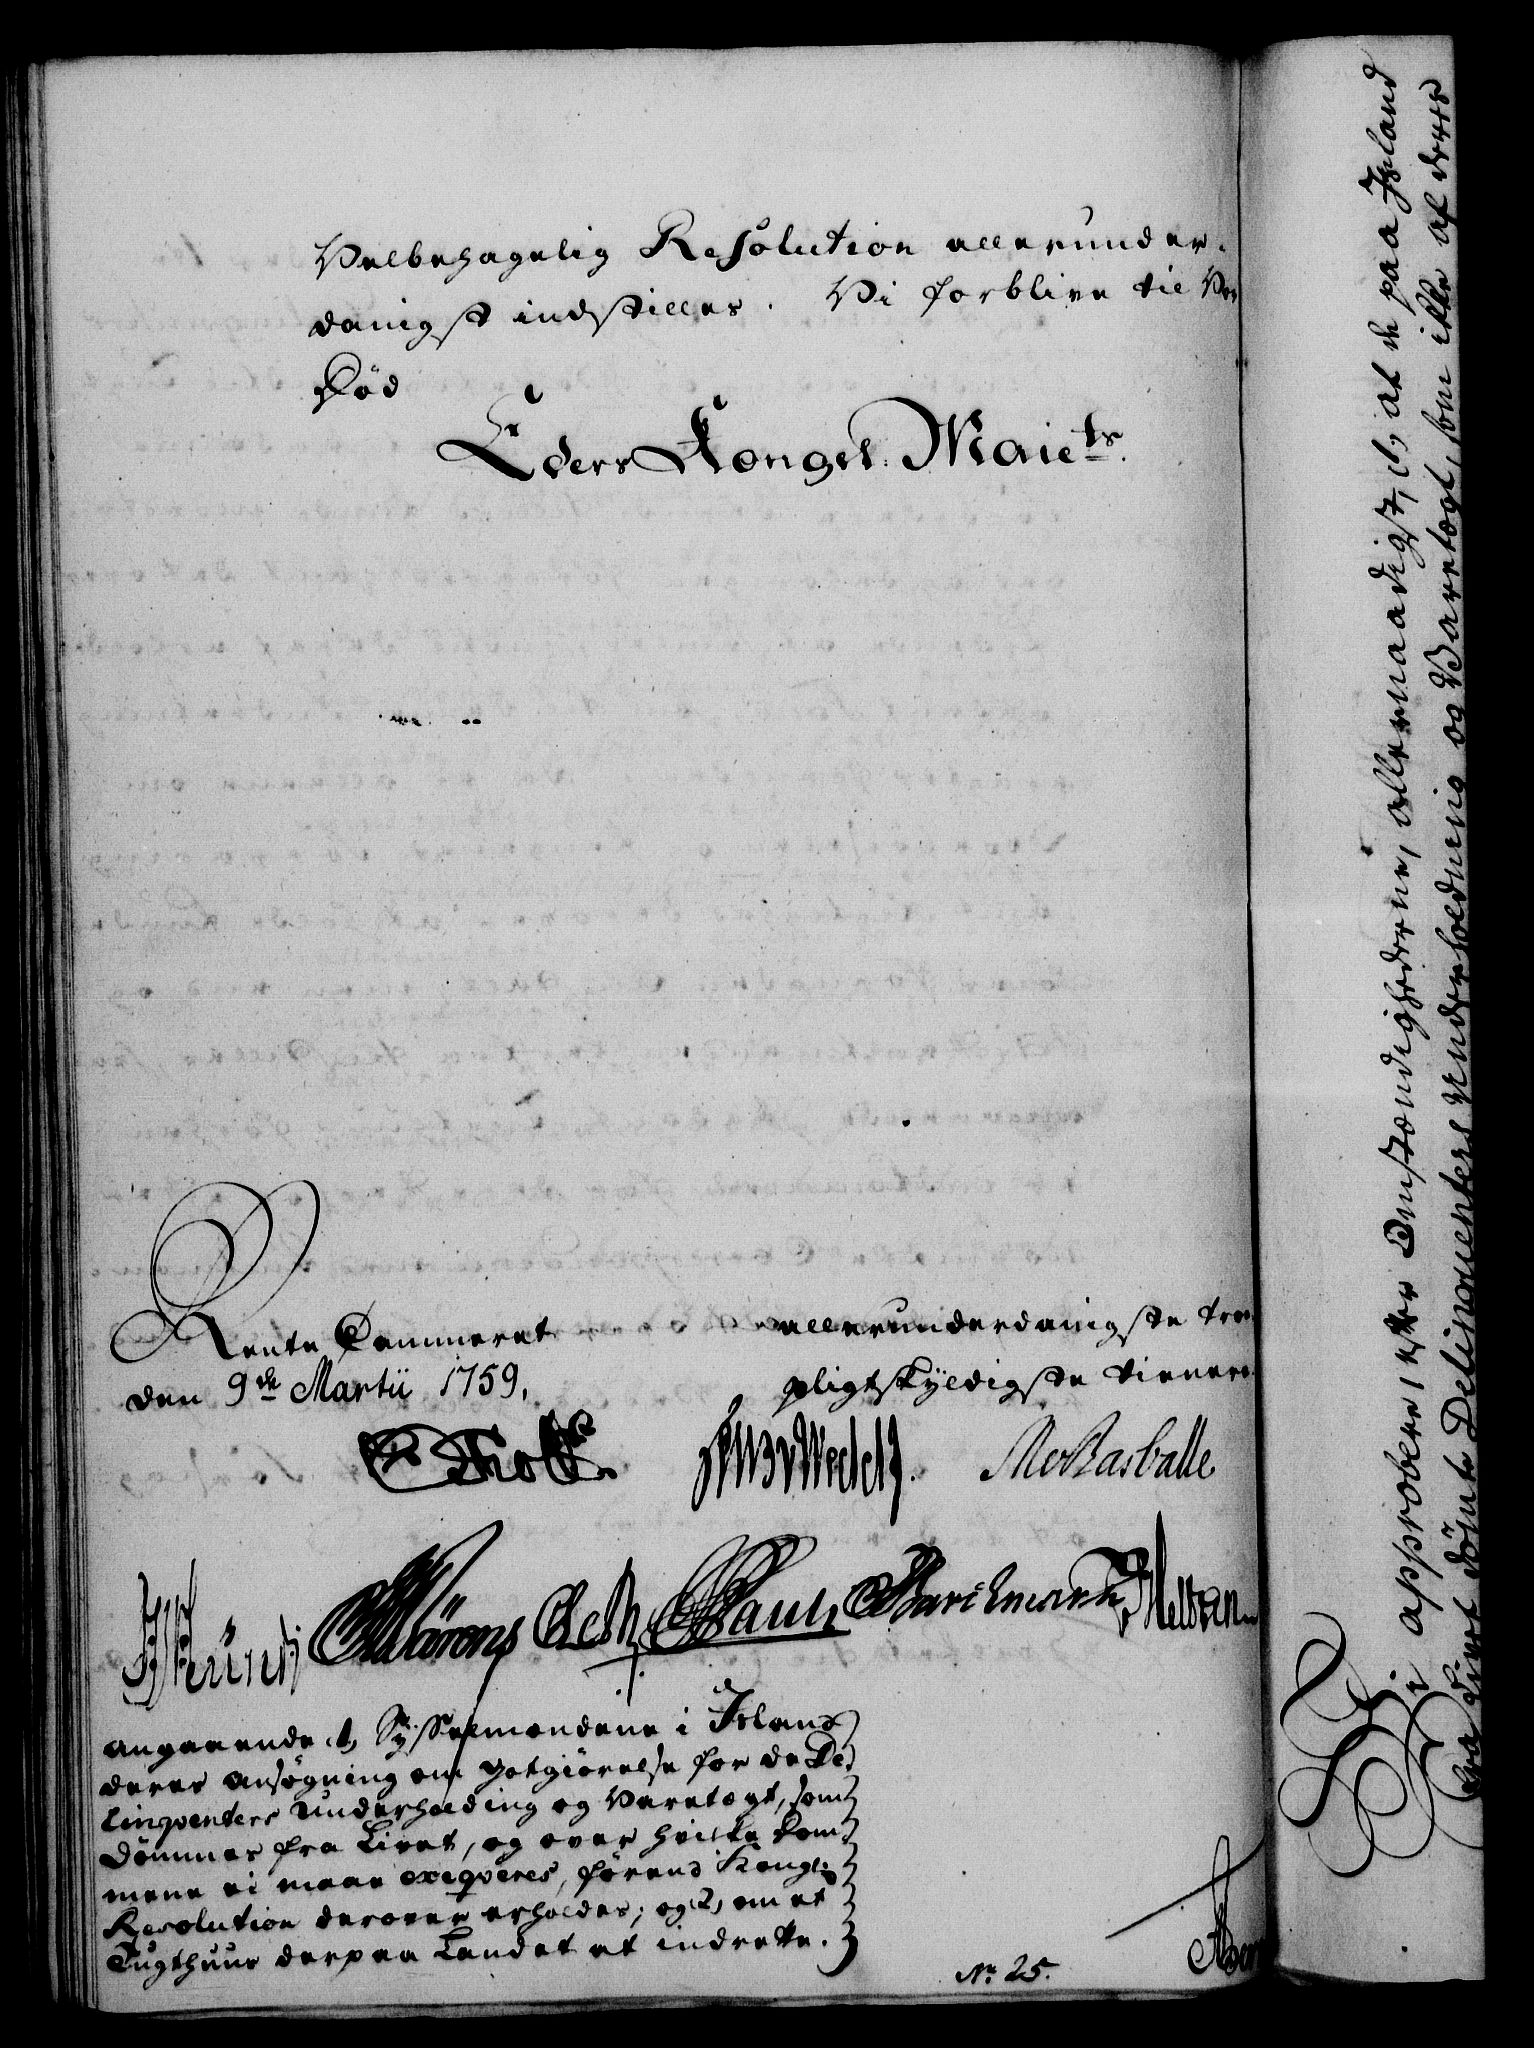 Velbehagelig Resolution allerunder-
danigst indstilles. Vi forblive til
Død
Eders Kongel: Maiets.
Rente Cammeret
den 9de Martii 1759.
allerunderdanigste
pligtskyldigste tienere
Holst
Wedel
Rasballe
Bartemann
angaaende 1, Sysselmændene i Island
deres Ansøgning om Godtgiørelse for de De-
linqventers Underholding og Varetægt, som
dømmes fra Livet, og over hvilke Dom-
mene ei maae exeqveres, førend Kongl:
Resolution derover erholdes; og 2, om et
Tugthuus der paa Landet at indrette.
No. 25.
Vi approbere, efter Omstændighederne, allernaadigst, 1, at de paa Island
fra Livet dömte Delinqventers Underholdning og Varetægt, som ikke af deres